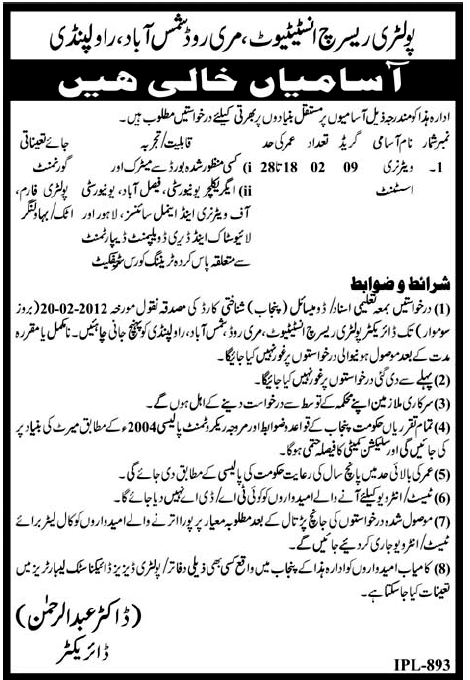 پولٹری ریسرچ انسٹیٹیوٹ، مری روڈ شمس آباد، راولپنڈی
آسامیاں خالی ھیں
ادارہ ہذا کو مندرجہ ذیل آسامیوں پر مستقل بنیادوں پر بھرتی کیلئے درخواستیں مطلوب ہیں۔
نمبر شمار نام آسامی گریڈ تعداد عمر کی حد قابلیت/تجربہ جائے تعیناتی
1۔ ویٹرنری 09 02 18 تا 28 i) کسی منظور شدہ بورڈ سے میٹرک اور گورنمنٹ
اسسٹنٹ ii) ایگریکلچر یونیورسٹی، فیصل آباد، یونیورسٹی پولٹری فارم،
آف ویٹرنری اینڈ اینیمل سائنسز، لاہور اور اٹک/بہاولنگر
لائیوسٹاک اینڈ ڈیری ڈویلپمنٹ ڈیپارٹمنٹ
سے متعلقہ پاس کردہ ٹریننگ کورس سرٹیفکیٹ
شرائط و ضوابط
(1) درخواستیں بمعہ تعلیمی اسناد/ڈومیسائل (پنجاب) شناختی کارڈ کی مصدقہ نقول مورخہ 2012-02-20 (بروز
سوموار) تک ڈائریکٹر پولٹری ریسرچ انسٹیٹیوٹ، مری روڈ شمس آباد، راولپنڈی کو پہنچ جانی چاہئیں۔ نامکمل یا مقررہ
مدت کے بعد موصول ہونیوالی درخواستوں پر غور نہیں کیا جائیگا۔
(2) پہلے سے دی گئی درخواستوں پر غور نہیں کیا جائیگا۔
(3) سرکاری ملازمین اپنے محکمہ کے توسط سے درخواست دینے کے اہل ہوں گے۔
(4) تمام تقرریاں حکومت پنجاب کے قواعد و ضوابط اور مروجہ ریکروٹمنٹ پالیسی 2004ء کے مطابق میرٹ کی بنیاد پر
کی جائیں گی اور سلیکشن کمیٹی کا فیصلہ حتمی ہوگا۔
(5) عمر کی بالائی حد میں پانچ سال کی رعایت حکومت کی پالیسی کے مطابق دی جائے گی۔
(6) ٹیسٹ/انٹرویو کیلئے آنے والے امیدواروں کو کوئی ٹی اے/ڈی اے نہیں دیا جائے گا۔
(7) موصول شدہ درخواستوں کی جانچ پڑتال کے بعد مطلوبہ معیار پر پورا اترنے والے امیدواروں کو کال لیٹر برائے
ٹیسٹ/انٹرویو جاری کر دیئے جائیں گے۔
(8) کامیاب امیدواروں کو ادارہ ہذا کے پنجاب میں واقع کسی بھی ذیلی دفاتر/پولٹری ڈیزیز ڈائیگناسٹک لیبارٹریز میں
تعینات کیا جاسکتا ہے۔
(ڈاکٹر عبدالرحمٰن)
ڈائریکٹر
IPL-893